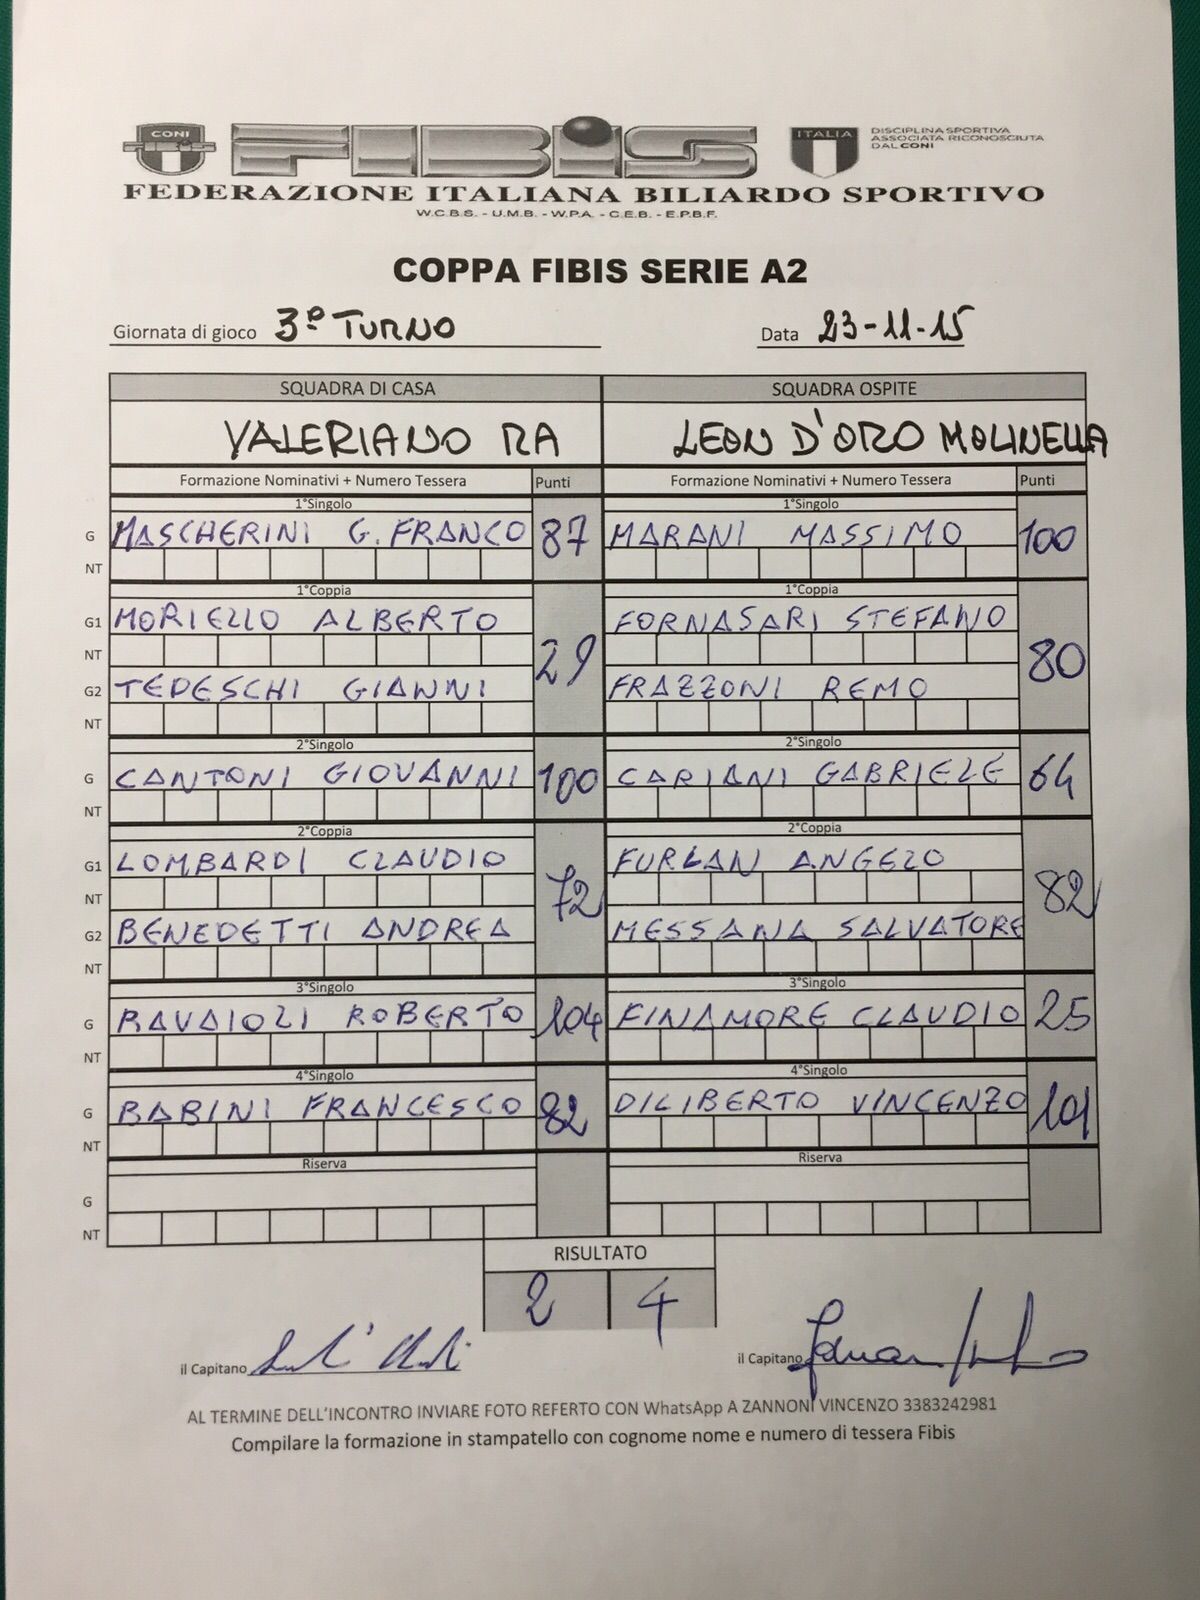 CONI FIBIS ITALIA DISCIPLINA SPORTIVA
ASSOCIATA RICONOSCIUTA
DAL CONI
FEDERAZIONE ITALIANA BILIARDO SPORTIVO
W.C.B.S. - U.M.B. - W.P.A. - C.E.B. - E.P.B.F.
COPPA FIBIS SERIE A2
Giornata di gioco 3º TURNO Data 23-11-15
SQUADRA DI CASA SQUADRA OSPITE
VALERIANO RA LEON D'ORO MOLINELLA
Formazione Nominativi + Numero Tessera Punti Formazione Nominativi + Numero Tessera Punti
1°Singolo 1°Singolo
G MASCHERINI G. FRANCO 87 MARANI MASSIMO 100
NT
1°Coppia 1°Coppia
G1 MORIELLO ALBERTO FORNASARI STEFANO
NT 29 80
G2 TEDESCHI GIANNI FRAZZONI REMO
NT
2°Singolo 2°Singolo
G CANTONI GIOVANNI 100 CARIANI GABRIELE 64
NT
2°Coppia 2°Coppia
G1 LOMBARDI CLAUDIO FURLAN ANGELO
NT 72 82
G2 BENEDETTI ANDREA MESSANA SALVATORE
NT
3°Singolo 3°Singolo
G RAVAIOLI ROBERTO 104 FINAMORE CLAUDIO 25
NT
4°Singolo 4°Singolo
G BABINI FRANCESCO 82 DILIBERTO VINCENZO 101
NT
Riserva Riserva
G
NT
RISULTATO
2 4
il Capitano il Capitano
AL TERMINE DELL'INCONTRO INVIARE FOTO REFERTO CON WhatsApp A ZANNONI VINCENZO 3383242981
Compilare la formazione in stampatello con cognome nome e numero di tessera Fibis